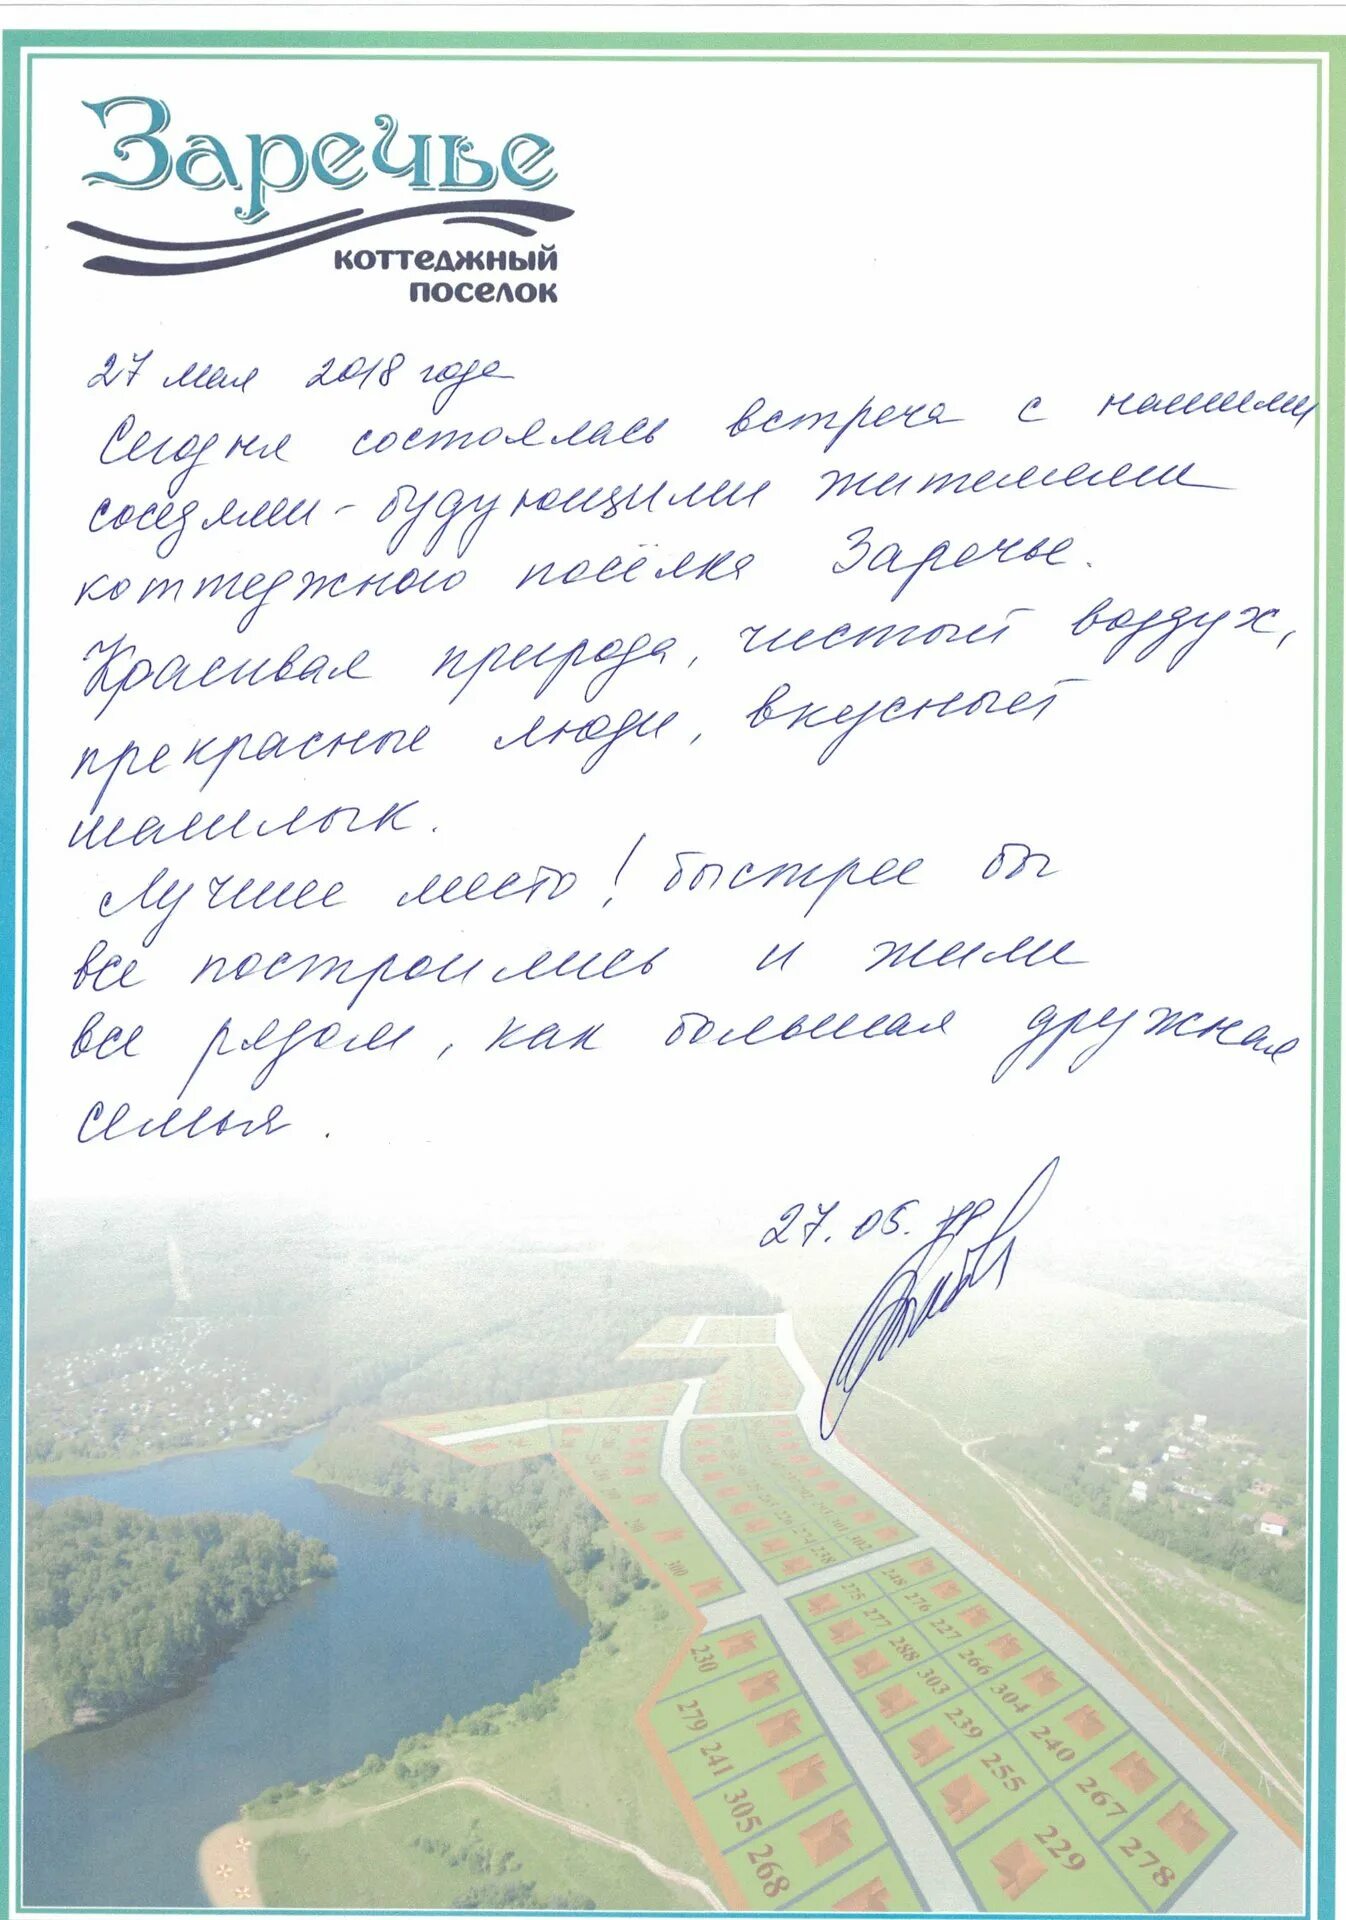 Заречье
коттеджный
поселок
27 мая 2018 года
Сегодня состоялась встреча с нашими
соседями - будующими жителями
коттеджного посёлка Заречье.
Красивая природа, чистый воздух,
прекрасные люди, вкусный
шашлык.
Лучшее место! быстрее бы
все построились и жили
все рядом, как большая дружная
семья.
27.05.
300
230
279
241
305
268
275
277
288
303
239
255
229
248
276
227
266
304
240
267
278